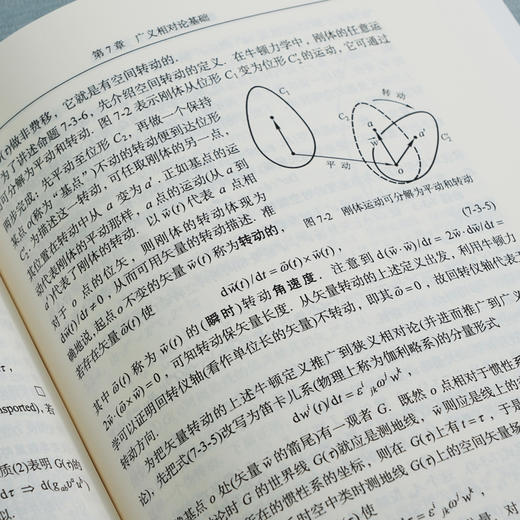 第 7 章 广义相对论基础
做非费移，它就是有空间转动的.
讲述命题 7-3-6, 先介绍空间转动的定义. 在牛顿力学中, 刚体的任意运
可分解为平动和转动. 图 7-2 表示刚体从位形 C₁ 变为位形 C₂′ 的运动, 它可通过
两步完成, 先平动至位形 C₂, 再做一个保持
某点 o(称为“基点”)不动的转动便到达位形
C₂′. 为描述这一转动, 可任取刚体的另一点,
其位置在转动中从 a 变为 a′. 正如基点的运
动代表刚体的平动那样, a 点的运动(从 a 到
a′)代表了刚体的转动. 以 w⃗(t) 代表 a 点相
对于 o 点的位矢, 则刚体的转动体现为
dw⃗(t)/dt ≠ 0, 从而可用矢量的转动描述. 准
确地说, 起点 o 不变的矢量 w⃗(t) 称为转动的,
若存在矢量 ω⃗(t) 使
C₁
转动
C₂
C₂′
a
a′
w⃗
o
平动
图 7-2 刚体运动可分解为平动和转动
dw⃗(t)/dt = ω⃗(t) × w⃗(t), (7-3-5)
其中 ω⃗(t) 称为 w⃗(t) 的(瞬时)转动角速度. 注意到 d(w⃗·w⃗)/dt = 2w⃗·dw⃗/dt =
2w⃗·(ω⃗×w⃗) = 0, 可知转动保矢量长度. 从矢量转动的上述定义出发, 利用牛顿力
学可以证明回转仪轴(看作单位长的矢量)不转动, 即其 ω⃗ = 0, 故回转仪轴代表不
转动方向.
为把矢量转动的上述牛顿定义推广到狭义相对论(并进而推广到广义
论), 先把式(7-3-5)改写为笛卡儿系(物理上称为伽利略系)的分量形式
dwⁱ(t)/dt = εⁱⱼₖ ωʲ wᵏ,
基点 o 处(矢量 w⃗ 的箭尾)有一观者 G. 既然 o 点相对于惯性系
论时 G 的世界线 G(τ) 就应是测地线, w⃗ 则应是线上的
所在的惯性系的坐标, 则在 G(τ) 上有 t = τ, 于是
时空中类时测地线 G(τ) 上的空间矢量场
使
dwⁱ
= εⁱⱼₖ ωʲ wᵏ
□
nsported), 若
质(2)表明 G(τ) 的
dτ ⇒ d(g_ab
以